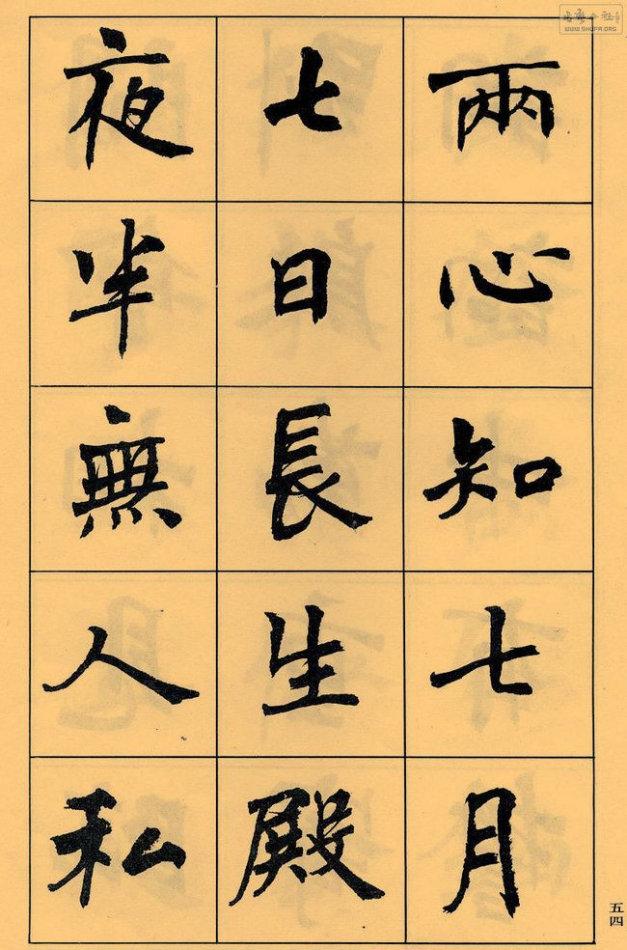 兩心知七月
七日長生殿
夜半無人私
五四
WWW.SHUFA.ORG